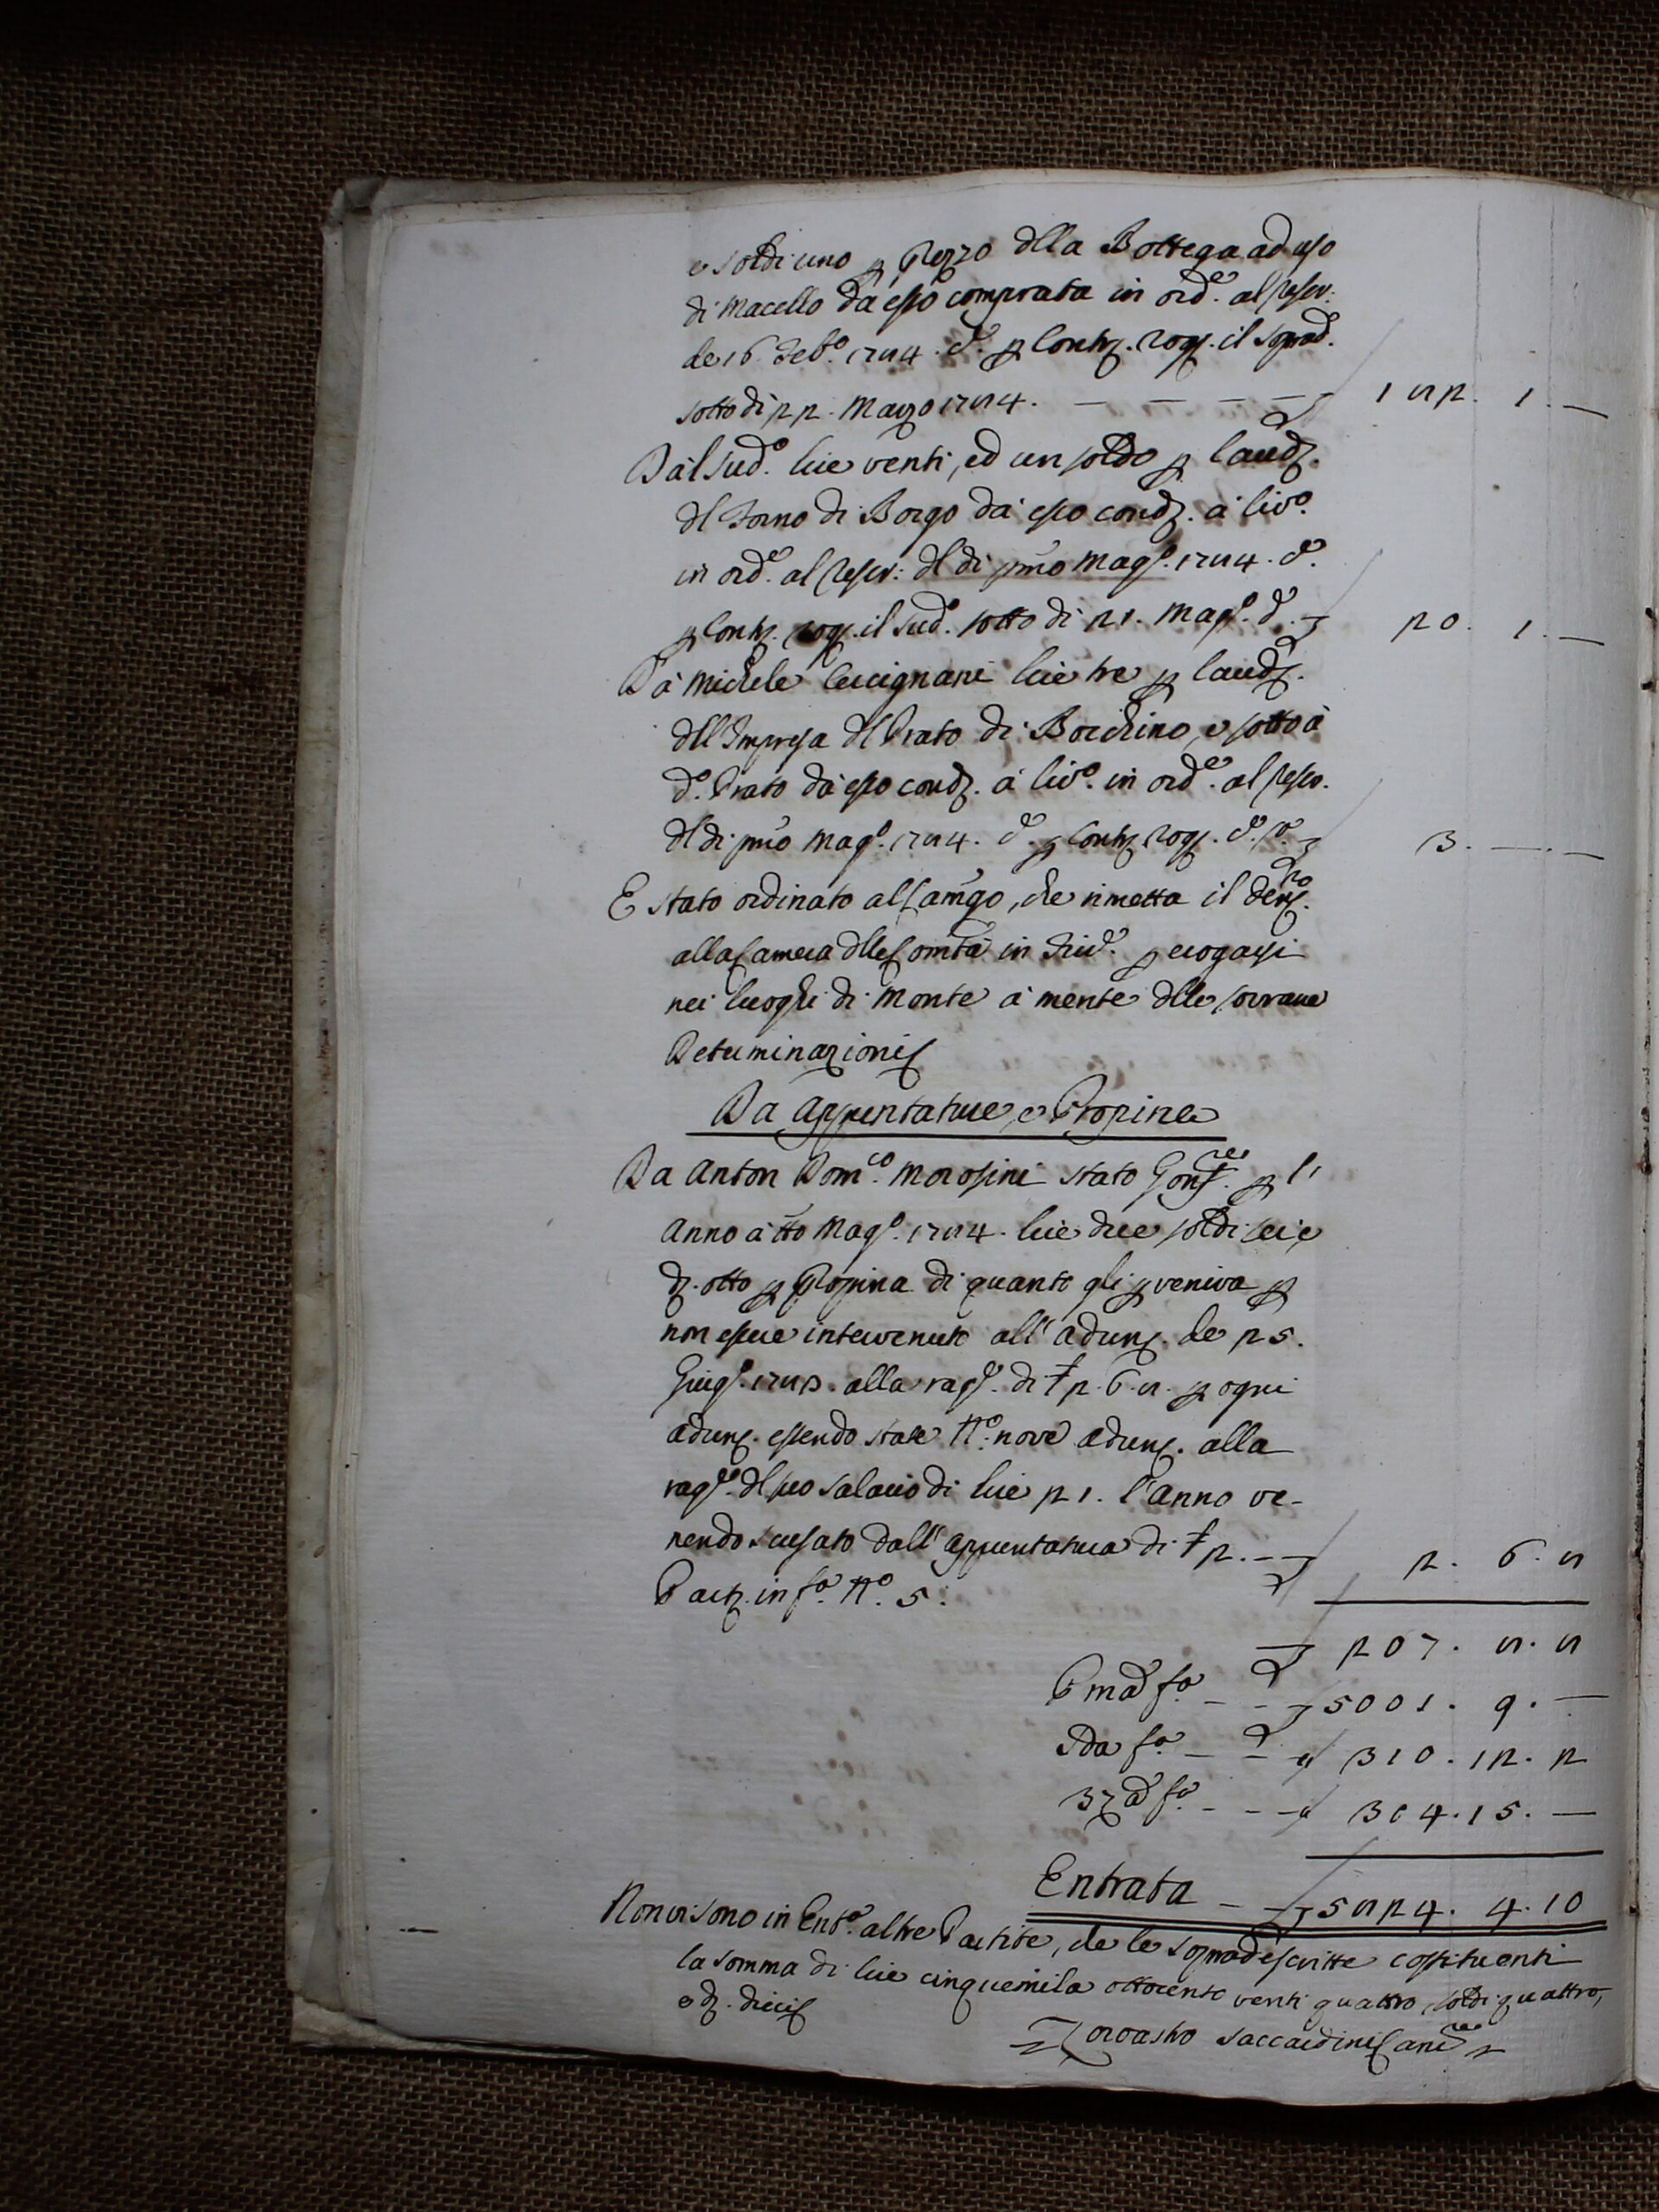 e soldi uno p Prezzo dlla Bottega ad uso
di Macello da esso comprata in orde. al Rescr:
de 16. Febo. 1784. de. p Contr. rogo. il soprad.
sotto di 22. Marzo 1784. — — — — 182. 1. —
Dal sudo. lire venti, ed un soldo p Laud.
dl Forno di Borgo da esso cond. à livo.
in orde. al Rescr: dl dì pmo Mago. 1784. de.
p Contr. rog. il sudo. sotto dì 21. Mago. de. 20. 1. —
Da Michele Cecignani lire tre p laud.
dll'Impresa dl Prato di Borchino, e sotto à
do. Prato da esso cond. à livo. in orde. al Rescr.
dl dì pmo Mago. 1784. de. p Contr. rog. de. so. 3. — . —
E stato ordinato al Camgo, che rimetta il denro.
alla Camera dlle Comtà in Fire. p erogarsi
nei luoghi di Monte à mente dlle sovrane
Determinazioni
Da Appuntature e Propine
Da Anton Domco. Morosini stato Gonfre. p l'
Anno à tto Mago. 1784. lire due soldi sei e
d. otto p Propina di quanto gli pveniva p
non essere intervenuto all'adunz. de 25.
Giugo. 1783. alla rage. di £ 2. 6. 8. p ogni
adunz. essendo state No. nove adunz. alla
rage. dl suo salario di lire 21. l'anno ve-
nendo scusato dall'appuntatura di £ 2. — 2. 6. 8
Partz. in fo. No. 5:
207. 8. 8
Pmã fa. — — 5001. 9. —
2da fa. — — 310. 12. 2
3zã fa. — — — 304. 15. —
Entrata — — 5824. 4. 10
Non vi sono in Enta. altre Partite, che le sopradescritte costituenti
la somma di lire cinquemila ottocento venti quattro, soldi quattro,
e d. dieci
Zoroastro Saccardini Cance